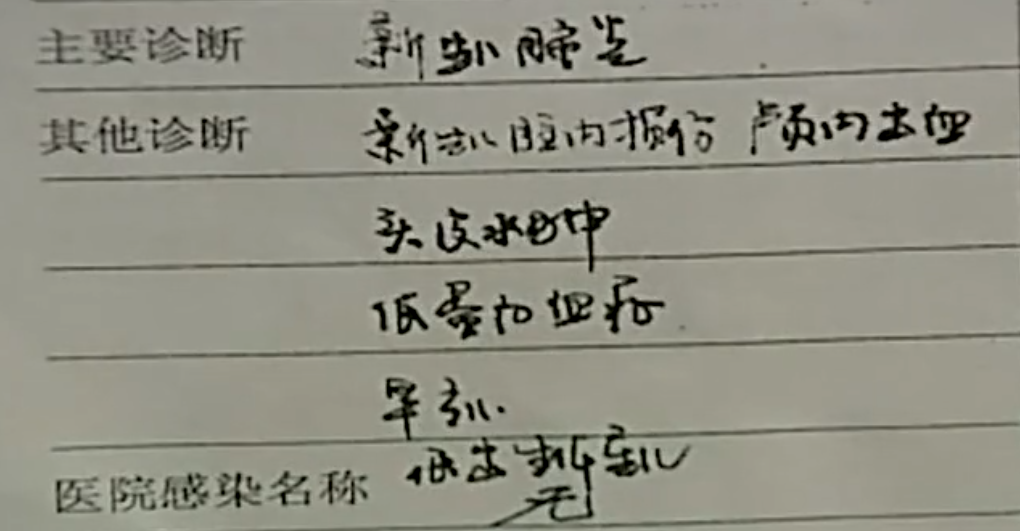 主要诊断 新生儿肺炎
其他诊断 新生儿脑内损伤 颅内出血
头皮水肿
低蛋白血症
早产儿
低出生体重儿
医院感染名称 无